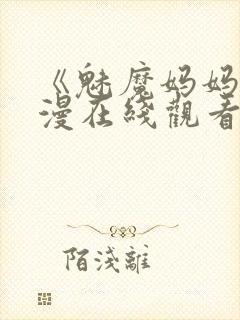 《魅魔妈妈
漫在线觀看
陌淺離